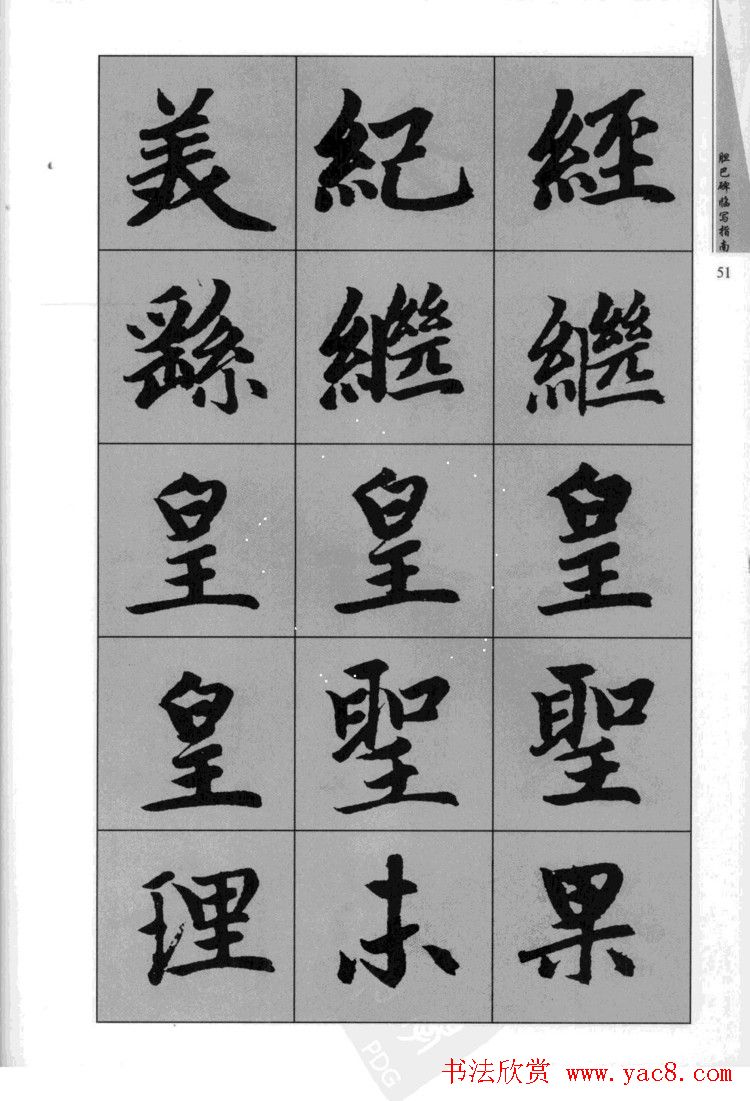 美紀經
繇繼繼
皇皇皇
皇聖聖
理木果
胆巴碑临写指南
51
PDG
书法欣赏 www.yac8.com